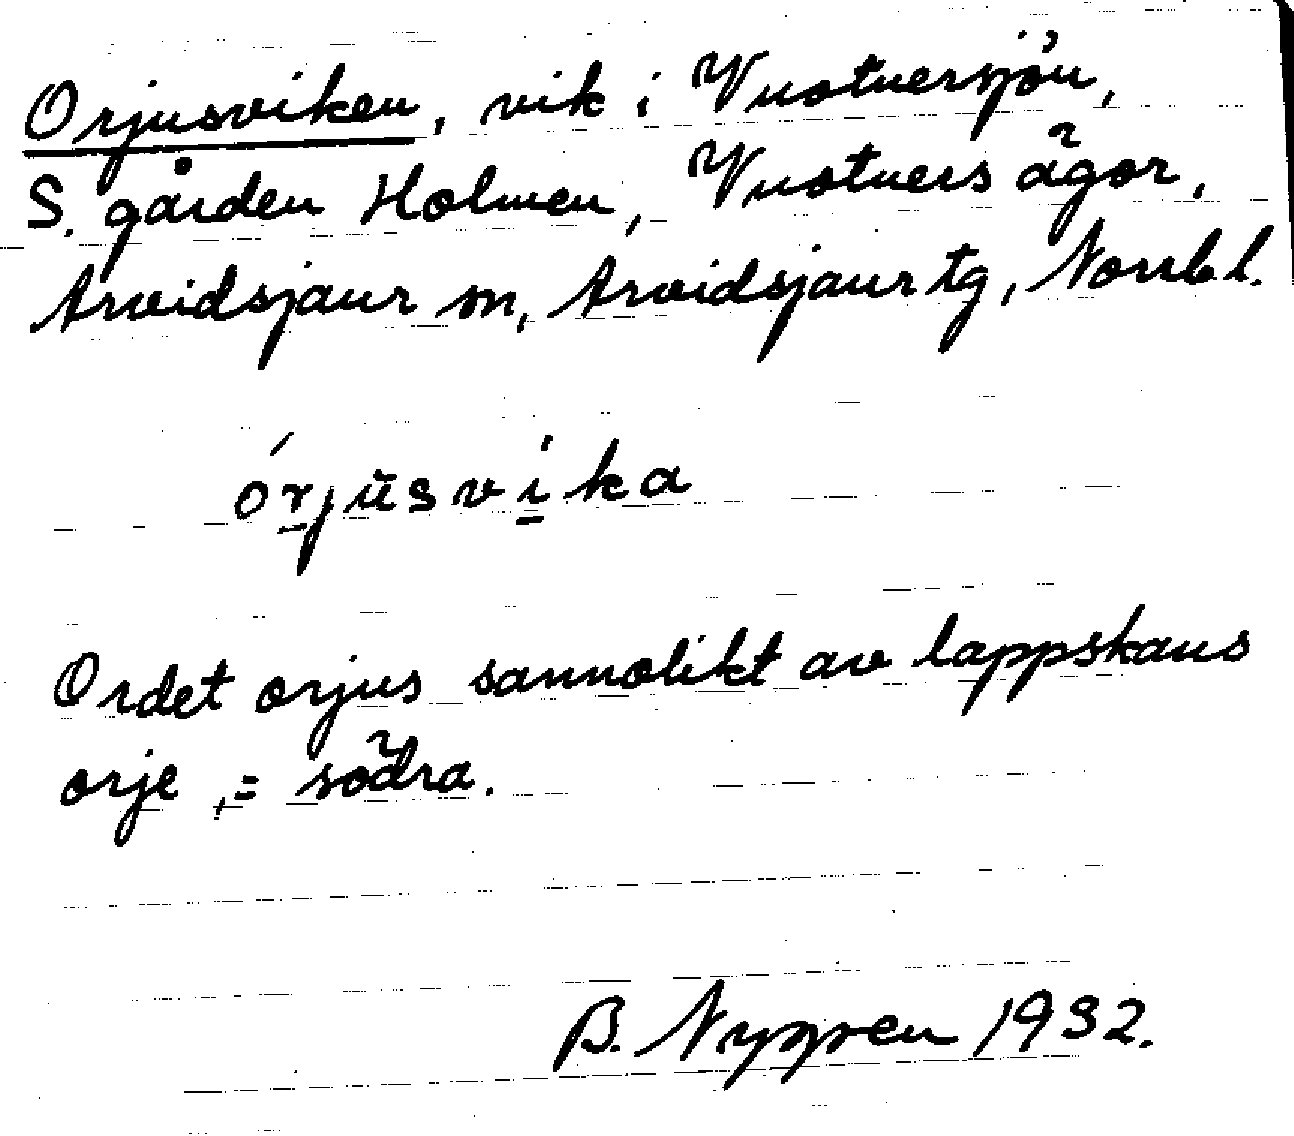 Orjusviken, vik i Vuotnersjön,
S. gården Holmen, Vuotners ägor,
Arvidsjaur sn, Arvidsjaur tg, Norrb l.
órjŭsvika
Ordet orjus sannolikt av lappskans
orje, = södra.
B. Nygren 1932.